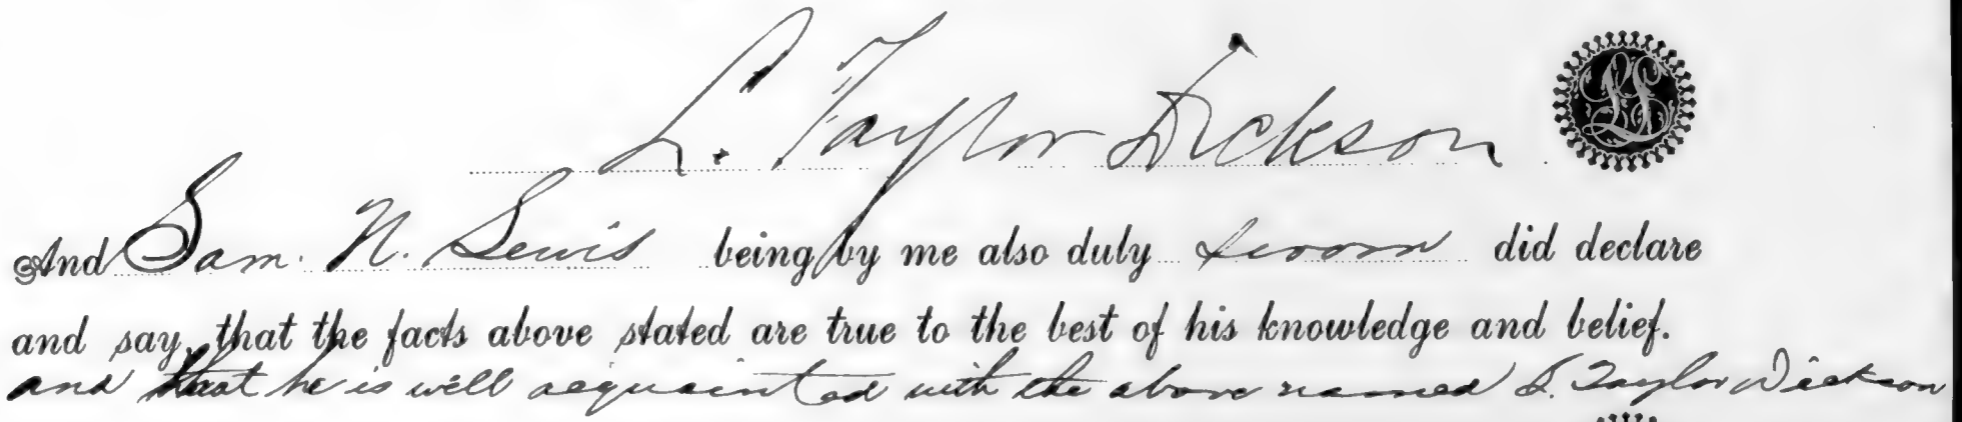 L. Taylor Dickson LS
And Sam. N. Lewis being by me also duly sworn did declare
and say, that the facts above stated are true to the best of his knowledge and belief.
and that he is well acquainted with the above named L. Taylor Dickson